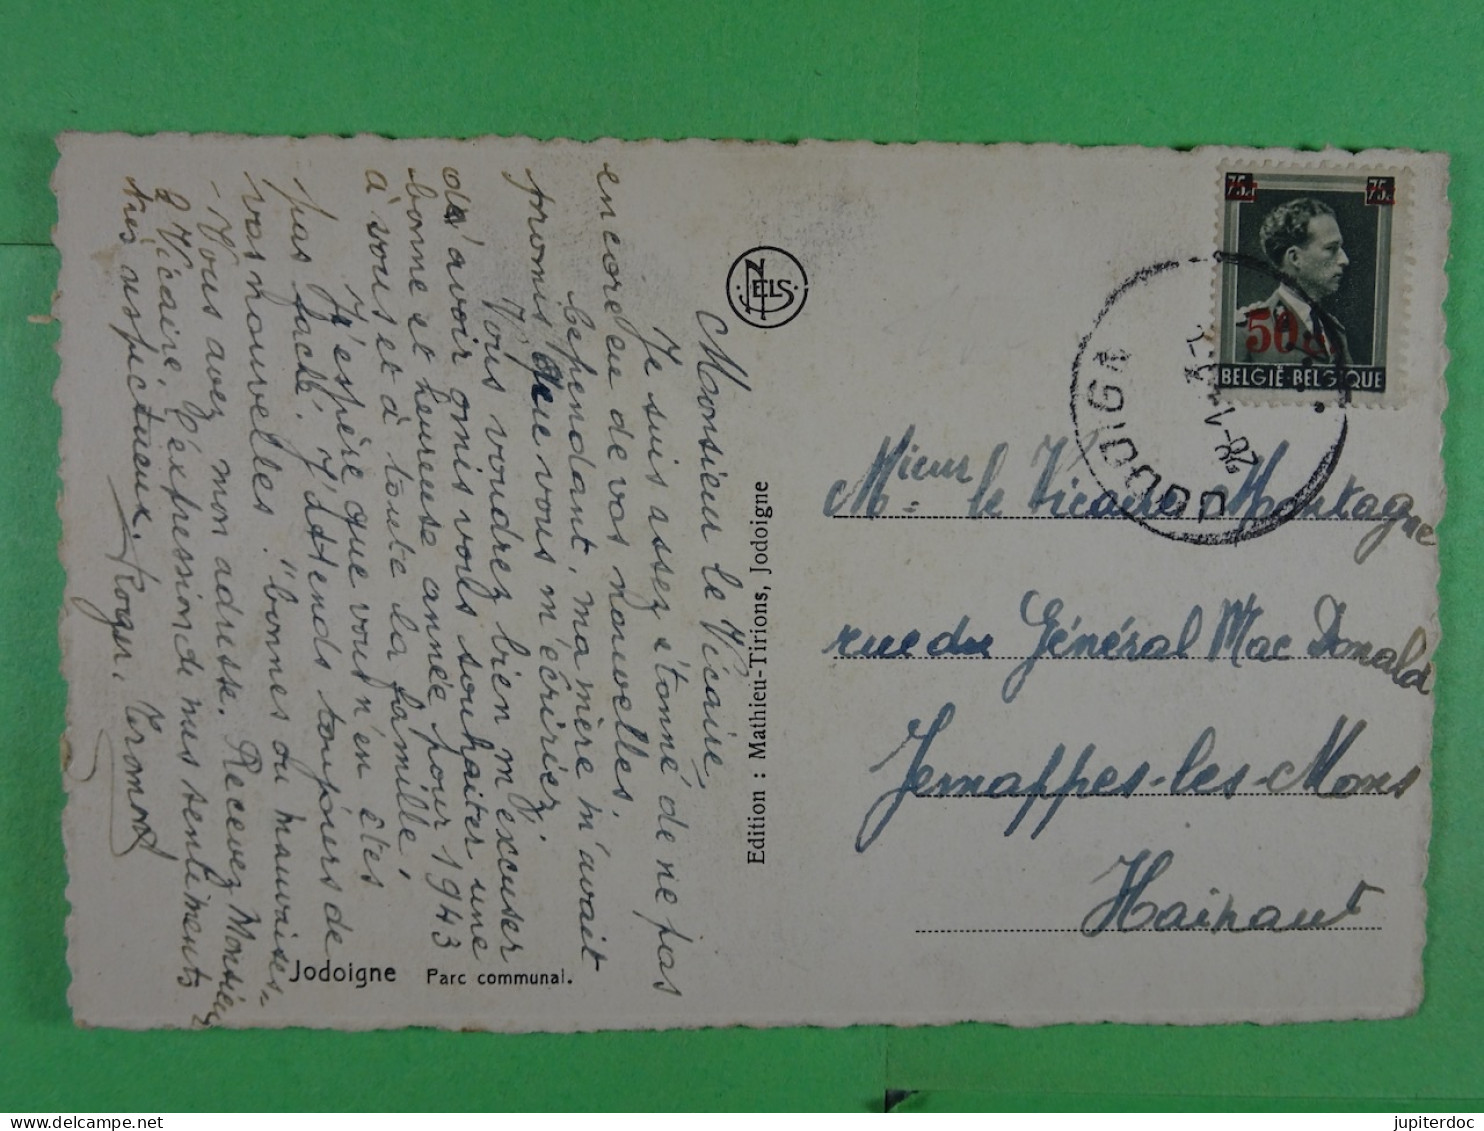 Monsieur le Vicaire,
Je suis assez étonné de ne pas
encore eu de vos nouvelles.
Cependant, ma mère m'avait
promis que vous m'écririez.
Vous voudrez bien m'excuser
d'avoir omis vous souhaiter une
bonne et heureuse année pour 1943
à vous et à toute la famille,
J'espère que vous n'en êtes
pas faché. J'attends toujours de
vos nouvelles. "bonnes ou mauvaises-
- Vous avez mon adresse. Recevez Monsieur
l Vicaire, l'expression de mes sentiments
très respectueux. Roger.
NELS
Edition : Mathieu-Tirions, Jodoigne
Jodoigne Parc communal.
75c 75c
50c
BELGIË-BELGIQUE
JODOIGN
28-1
Mieur le Vicaire Montagne
rue du Général Mac Donald
Jemappes-les-Mons
Hainaut
https://www.delcampe.net
jupiterdoc